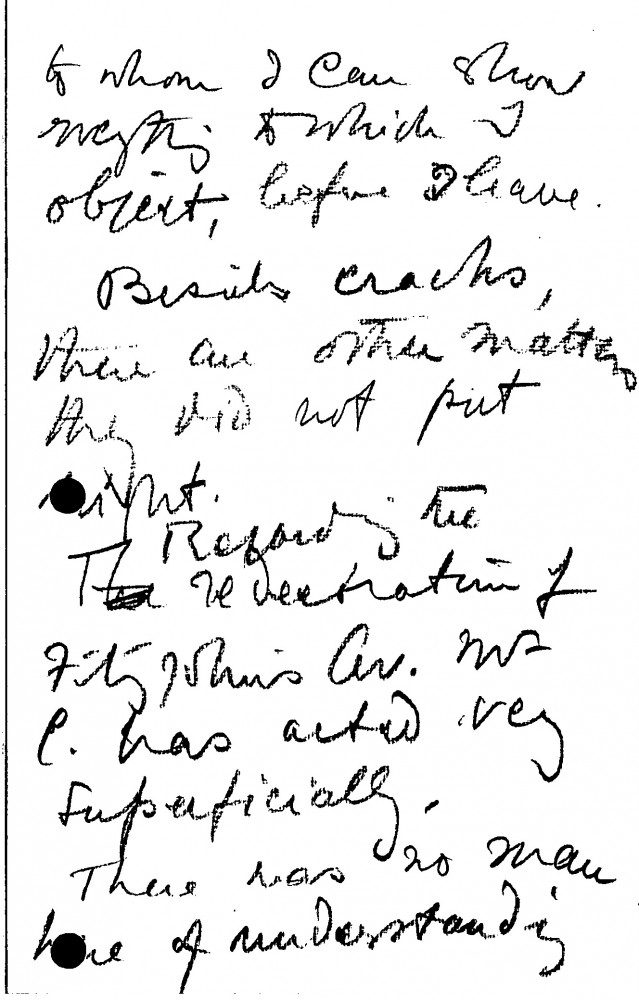 to whom I can show
everything to which I
object, before I leave.
Besides cracks,
there are other matters
they did not put
right.
Regarding the
redecoration of
Fitzjohns Av.
C. has acted very
superficially.
There was no man
here of understanding